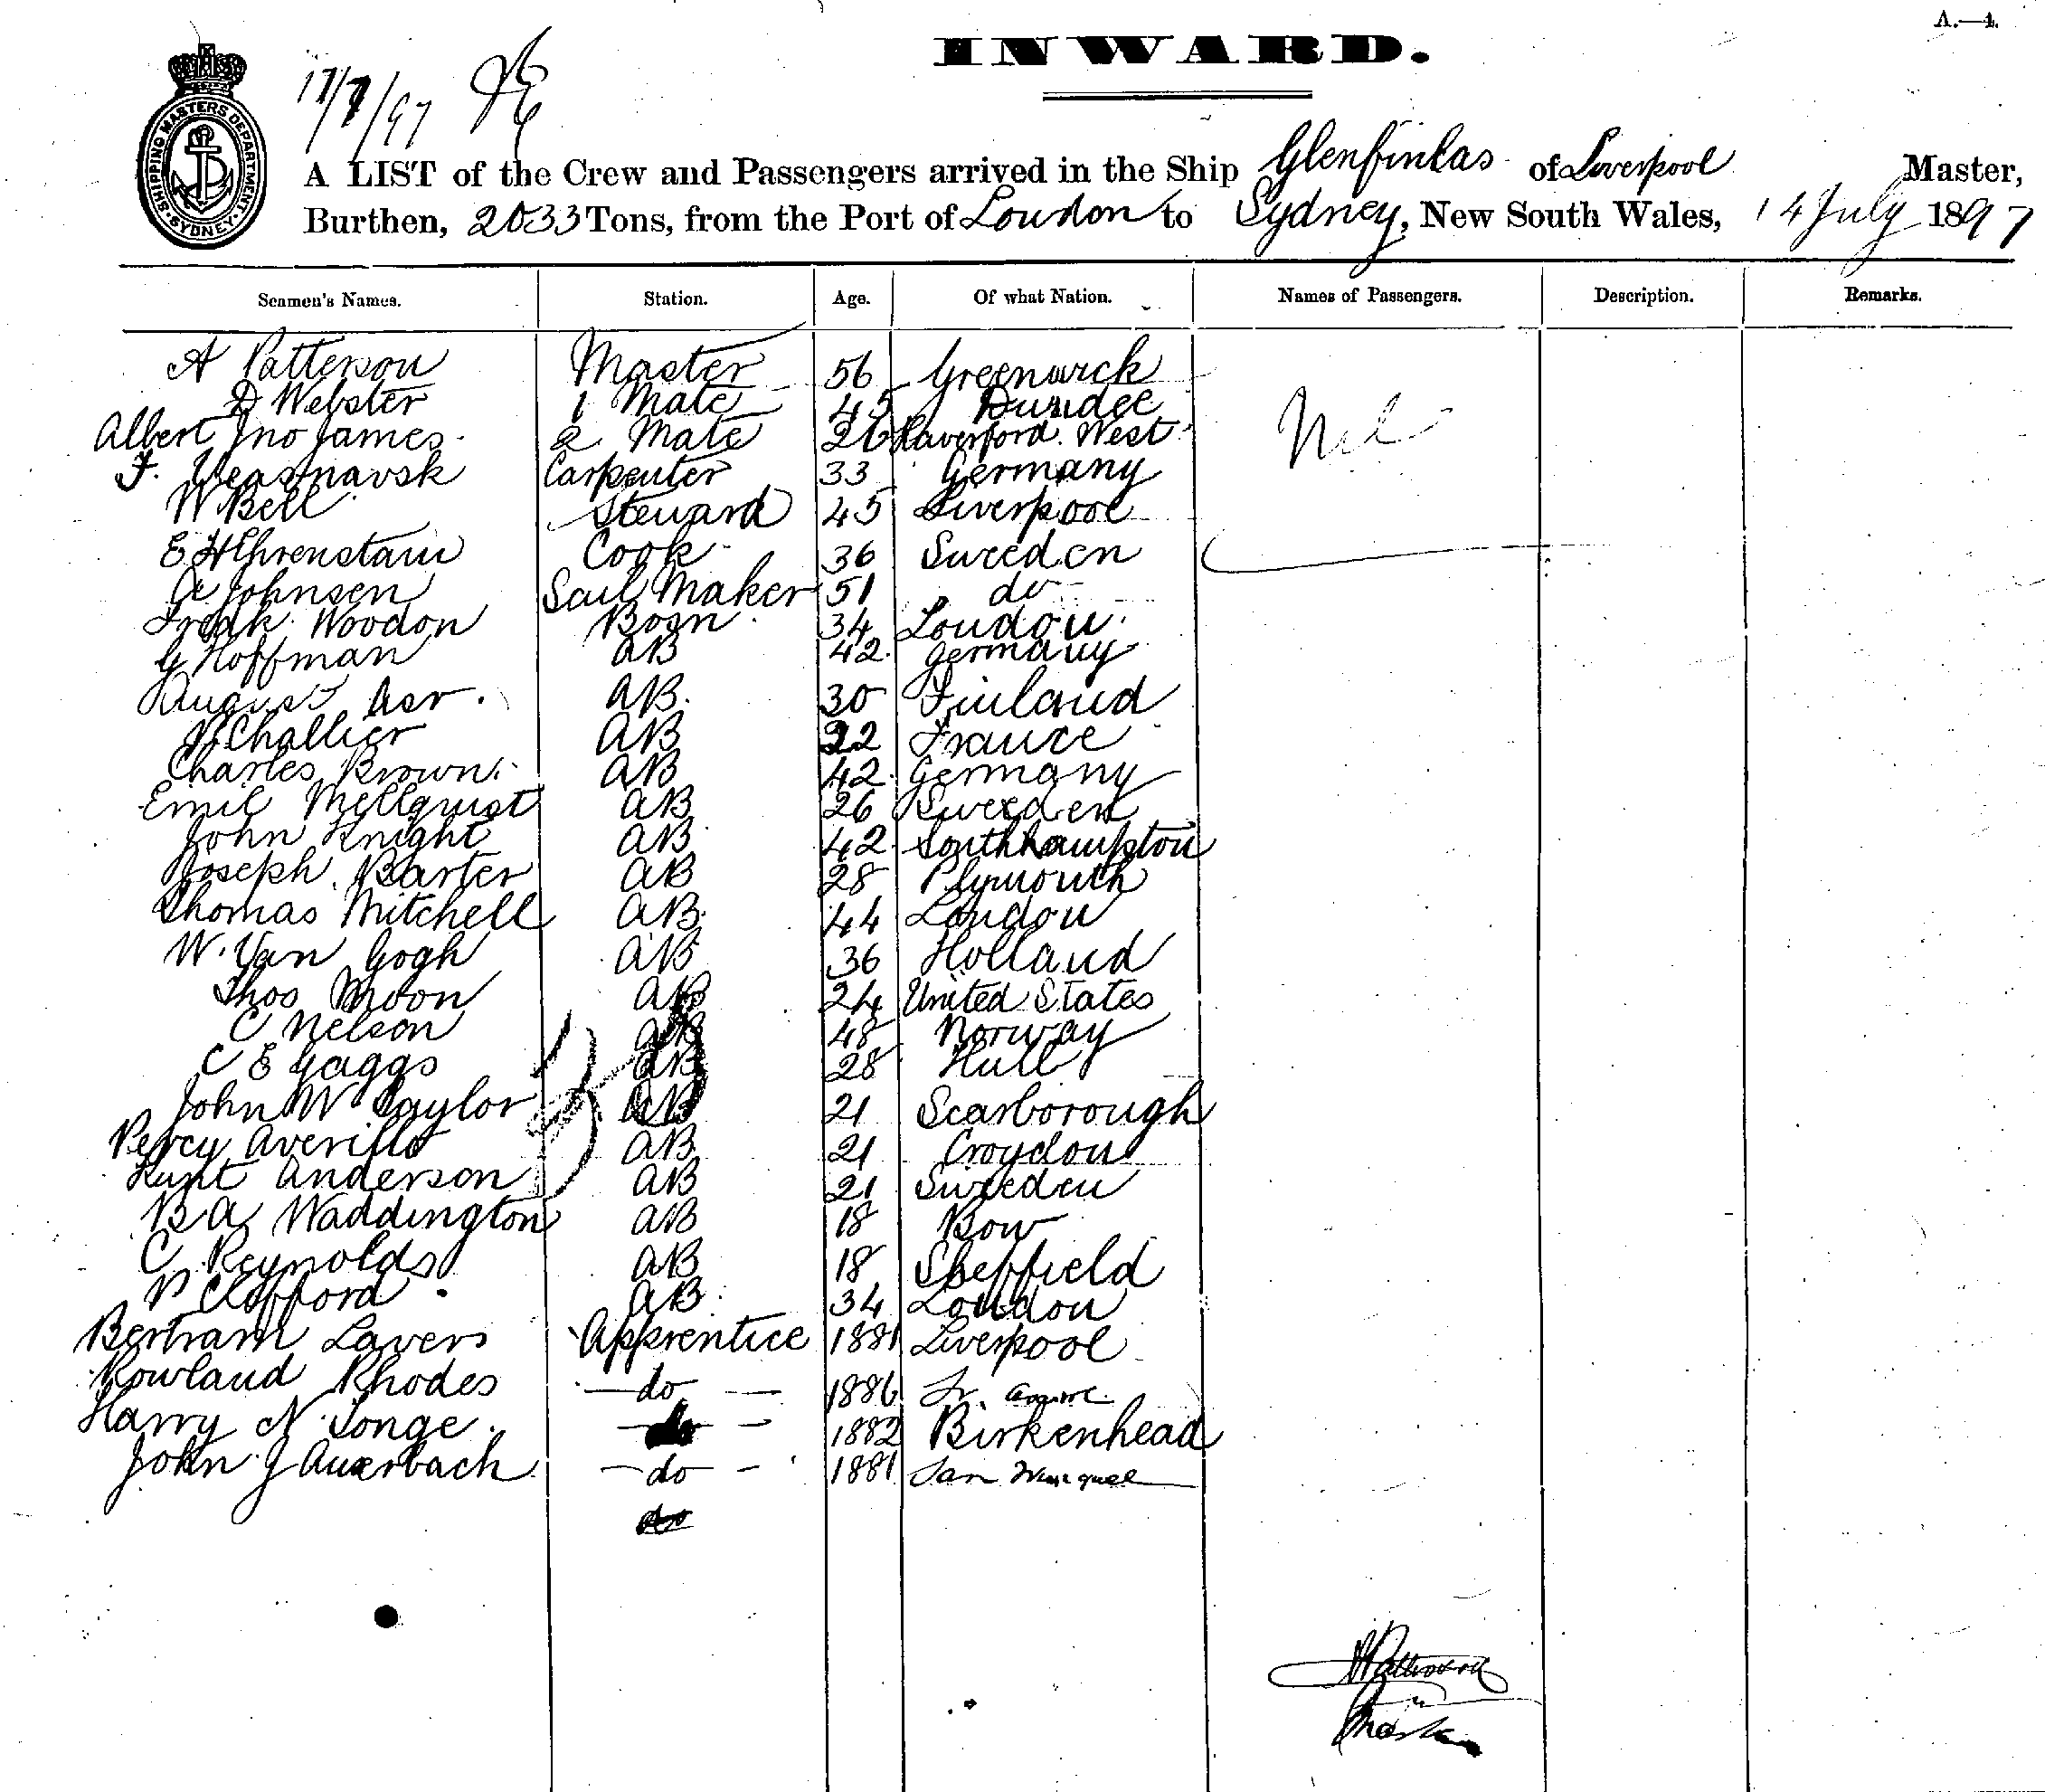 A.—4.
INWARD.
SHIPPING MASTERS DEPARTMENT SYDNEY
17/7/97
A LIST of the Crew and Passengers arrived in the Ship Glenfinlas of Liverpool Master,
Burthen, 2033 Tons, from the Port of London to Sydney, New South Wales, 14 July 1897
Seamen's Names. Station. Age. Of what Nation. Names of Passengers. Description. Remarks.
A Patterson Master 56 Greenwick
D Webster 1 Mate 45 Dundee Nil
Albert Jno James 2 Mate 26 Haverford West
F. Carpenter 33 Germany
W Bell Steward 45 Liverpool
E H Ehrenstam Cook 36 Sweden
A Johnsen Sail Maker 51 do
Fredk Woodon Bosn 34 London
G Hoffman AB 42 Germany
August AB 30 Finland
Challier AB 22 France
Charles Brown AB 42 Germany
Emil Mellquist AB 26 Sweden
John Knight AB 42 Southhampton
Joseph Barter AB 28 Plymouth
Thomas Mitchell AB 44 London
W. Van Gogh AB 36 Holland
Thos Moon AB 24 United States
C Nelson AB 48 Norway
C E Gaggs AB 28 Hull
John W Taylor AB 21 Scarborough
Percy Averillo AB 21 Croydon
Kunt Anderson AB 21 Sweden
B A Waddington AB 18 Bow
C Reynolds AB 18 Sheffield
P Clofford AB 34 London
Bertram Lavers Apprentice 1881 Liverpool
Rowland Rhodes do 1886
Harry N Tonge do 1882 Birkenhead
John J Auerbach do 1881 San
do
A Patterson
Master